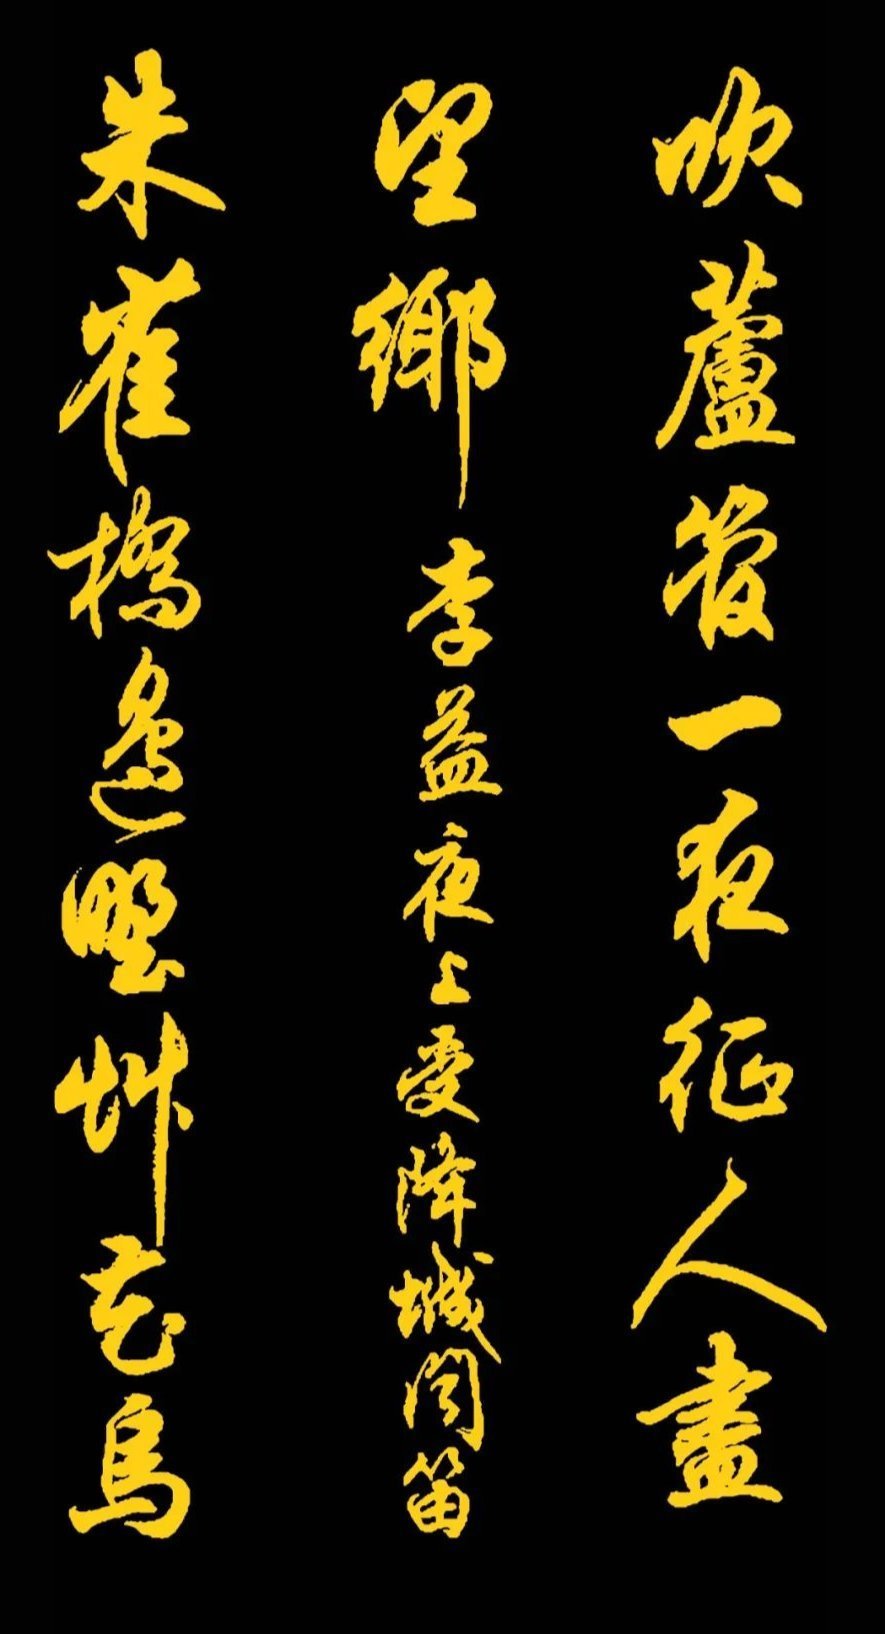 吹蘆管一夜征人盡
望鄉李益夜上受降城聞笛
朱雀橋邊野艸花烏